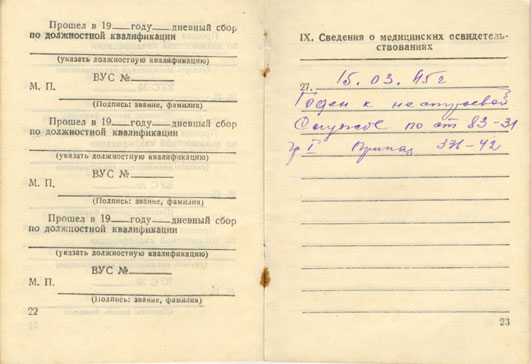 Прошел в 19 году дневный сбор
по должностной квалификации
(указать должностную квалификацию)
ВУС №
М. П.
(Подпись: звание, фамилия)
Прошел в 19 году дневный сбор
по должностной квалификации
(указать должностную квалификацию)
ВУС №
М. П.
(Подпись: звание, фамилия)
Прошел в 19 году дневный сбор
по должностной квалификации
(указать должностную квалификацию)
ВУС №
М. П.
(Подпись: звание, фамилия)
22
IX. Сведения о медицинских освидетель-
ствованиях
27. 15.03.45г
Годен к нестроевой
Службе по ст 83-31
гр I Приказ 336-42
23